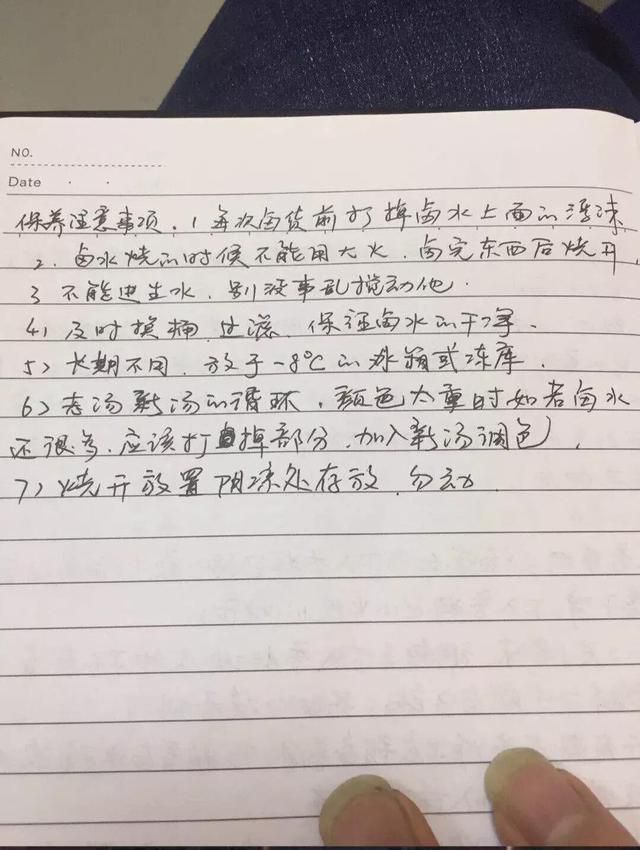 NO.
Date
保养注意事项. 1 每次卤货前打掉卤水上面的浮沫.
2. 卤水烧的时候不能用大火. 卤完东西后烧开
3 不能进生水. 别没事乱搅动他.
4) 及时换桶. 过滤. 保证卤水的干净.
5) 长期不用. 放于-8℃的冰箱或冻库.
6) 老汤新汤的循环. 颜色太重时如若卤水
还很多. 应该打掉部分. 加入新汤调色.
7) 烧开放置阴凉处存放. 勿动